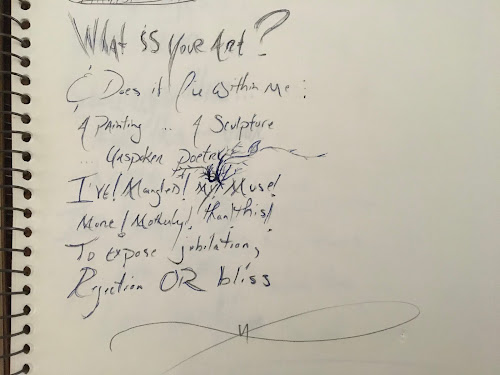 What is Your Art?
& Does it lie within me :
A Painting .. A Sculpture
... Unspoken poetry
I've! Mangled! My Muse!
More! Motherly!, than! this!
To expose jubilation,
Rejection OR bliss